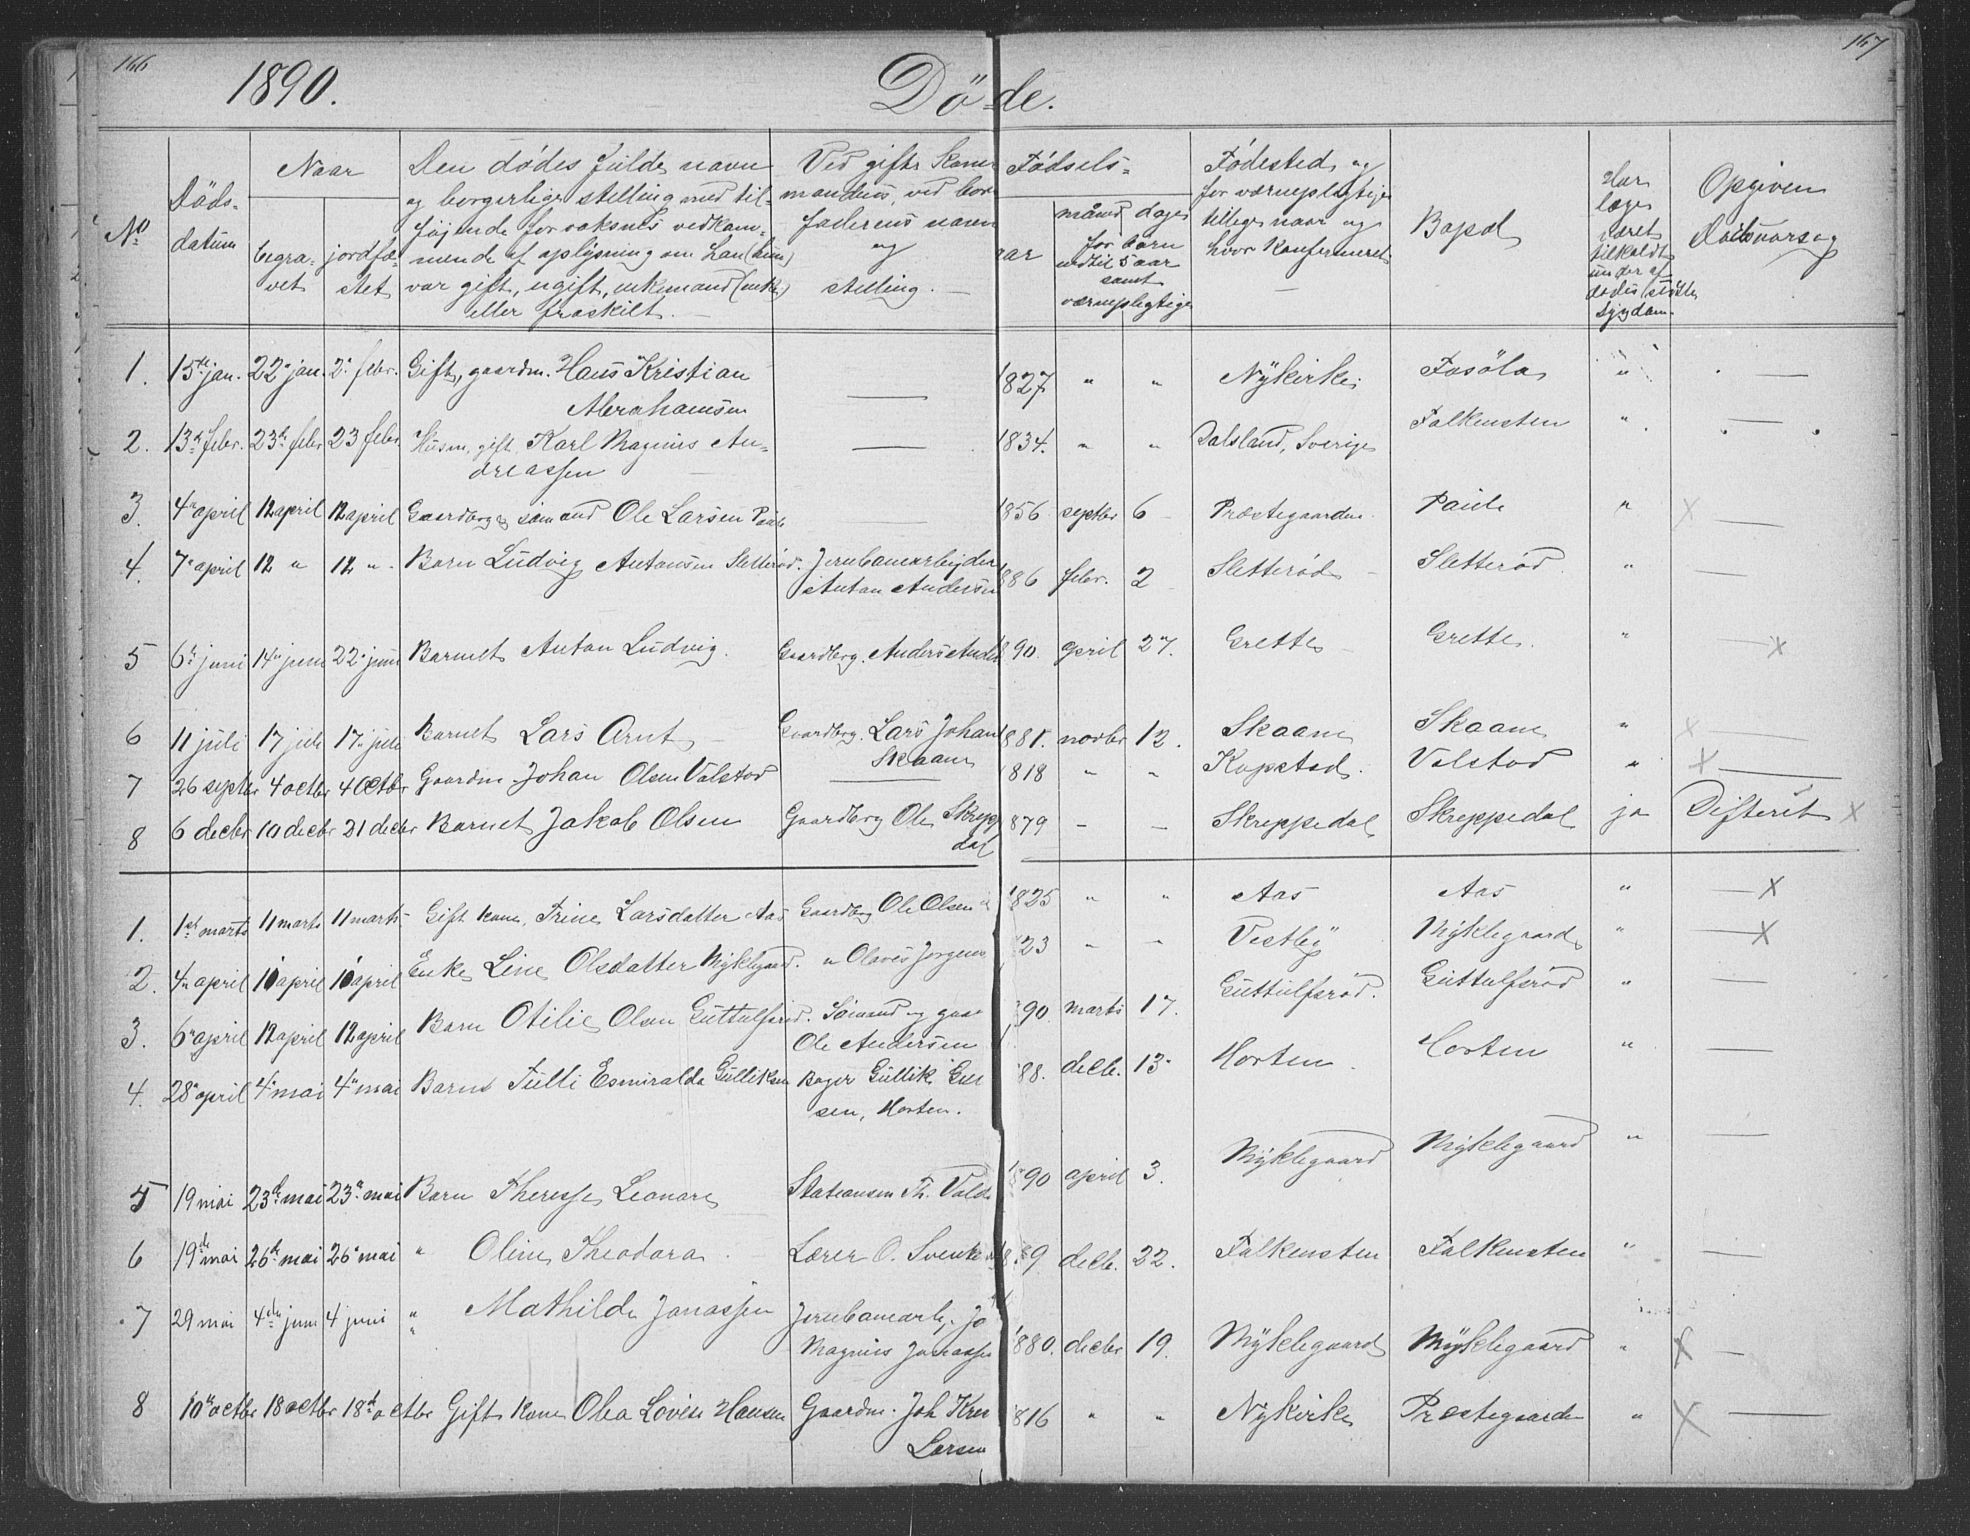 166
167
1890.
Döde.
No
Döds-
datum
Naar
begra-
vet
jordfæ-
stet
Den dödes fulde navn
og borgerlige stelling med til-
föjende for voksnes vedkom-
mende af oplysning om han (hun)
var gift, ugift, enkemand (enke)
eller fraskilt.
Ved gifte kone
mandens, ved born
faderens navn
og
stelling.
Födsels-
aar
maaned dage
for barn
indtil 5 aar
samt
værnepligtige
Födested og
for værnepligtige
tillige naar og
hvor konfirmeret
Bopæl
Har
læge
været
tilkaldt
under af
dödes sidste
sygdom.
Opgiven
Dödsaarsag
1. 15de jan. 22 jan. 2 febr. Gift, gaardm. Hans Kristian — 1827 " " Nÿkirke Fosöla " —
Abrahamsen
2. 13de febr. 23de febr 23 febr. Husm. gift, Karl Magnus An- — 1834. " " Dalsland, Sverige Falkensten " —
dreassen
3. 4 april 12 april 12 april Gaardbruger sömand Ole Larsen Paule — 1856 septbr 6 Præstegaarden Paule " x —
4. 7 april 12 " 12 " Barn Ludvig Antonsen Sletteröd. Jernbanearbejder 1886 febr. 2 Sletteröd Sletteröd " —
Anton Andersen
5 6 juni 14 juni 22 juni Barnet Anton Ludvig. Gaardbrg. Anders Ander 1890. april 27. Grette Grette. " — x
6 11 juli 17 juli 17 juli Barnet Lars Arnt Gaardbrg. Lars Johan 1881. novbr 12. Skaane Skaane " x —
Skaane
7 26 septbr 4 octbr 4 Octbr Gaardm. Johan Olsen Valstad — 1818 " " Kopstad. Valstad " x —
8 6 decbr 10 decbr 21 decbr Barnet Jakob Olsen Gaardbrg Ole Skrep 1879 - - Skreppedal Skreppedal ja Difterit x
dal
1. 1ste marts 11 marts 11 marts Gift kone, Trine Larsdatter Aas Gaardbrg Ole Olsen 1825 " " Aas Aas " — x
2. 4 april 10 april 10 april Enke Line Olsdatter Mÿklegaard. " Olaves Jorgens 23 " " Vestbÿ Mÿklegaard " — x
3. 6 april 12 april 12 april Barn Otilie Olsen Guttulfsröd. Sömand og gaar 90. marts 17. Guttulfsröd. Guttulfsröd " —
Ole Andersen
4. 28 april 4 mai 4 mai Barn Tulli Esmiralda Gulliksen Bager Gullik Gul 88. decb. 13 Horten Horten " —
sen, Horten.
5 19 mai 23de mai 23 mai Barn Theresse Leonare 1890 april 3. Mÿklegaard Mÿklegaard " —
6 19de mai 26de mai 26 mai " Oline Theodora Lærer O. Svenke 1889 decb. 22. Falkensten Falkensten " —
7 29 mai 4de juni 4 juni " Mathilde Jonassen Jernbanearb. Jo 1880. decbr 19. Mÿklegaard Mÿklegaard " x —
Magnus Jonassen
8 10 octbr 18 octbr 18de octbr Gift kone Olea Lovise Hansen Gaardm. Joh Kris 1816 " " Nykirke Præstegaarden " x —
Larsen